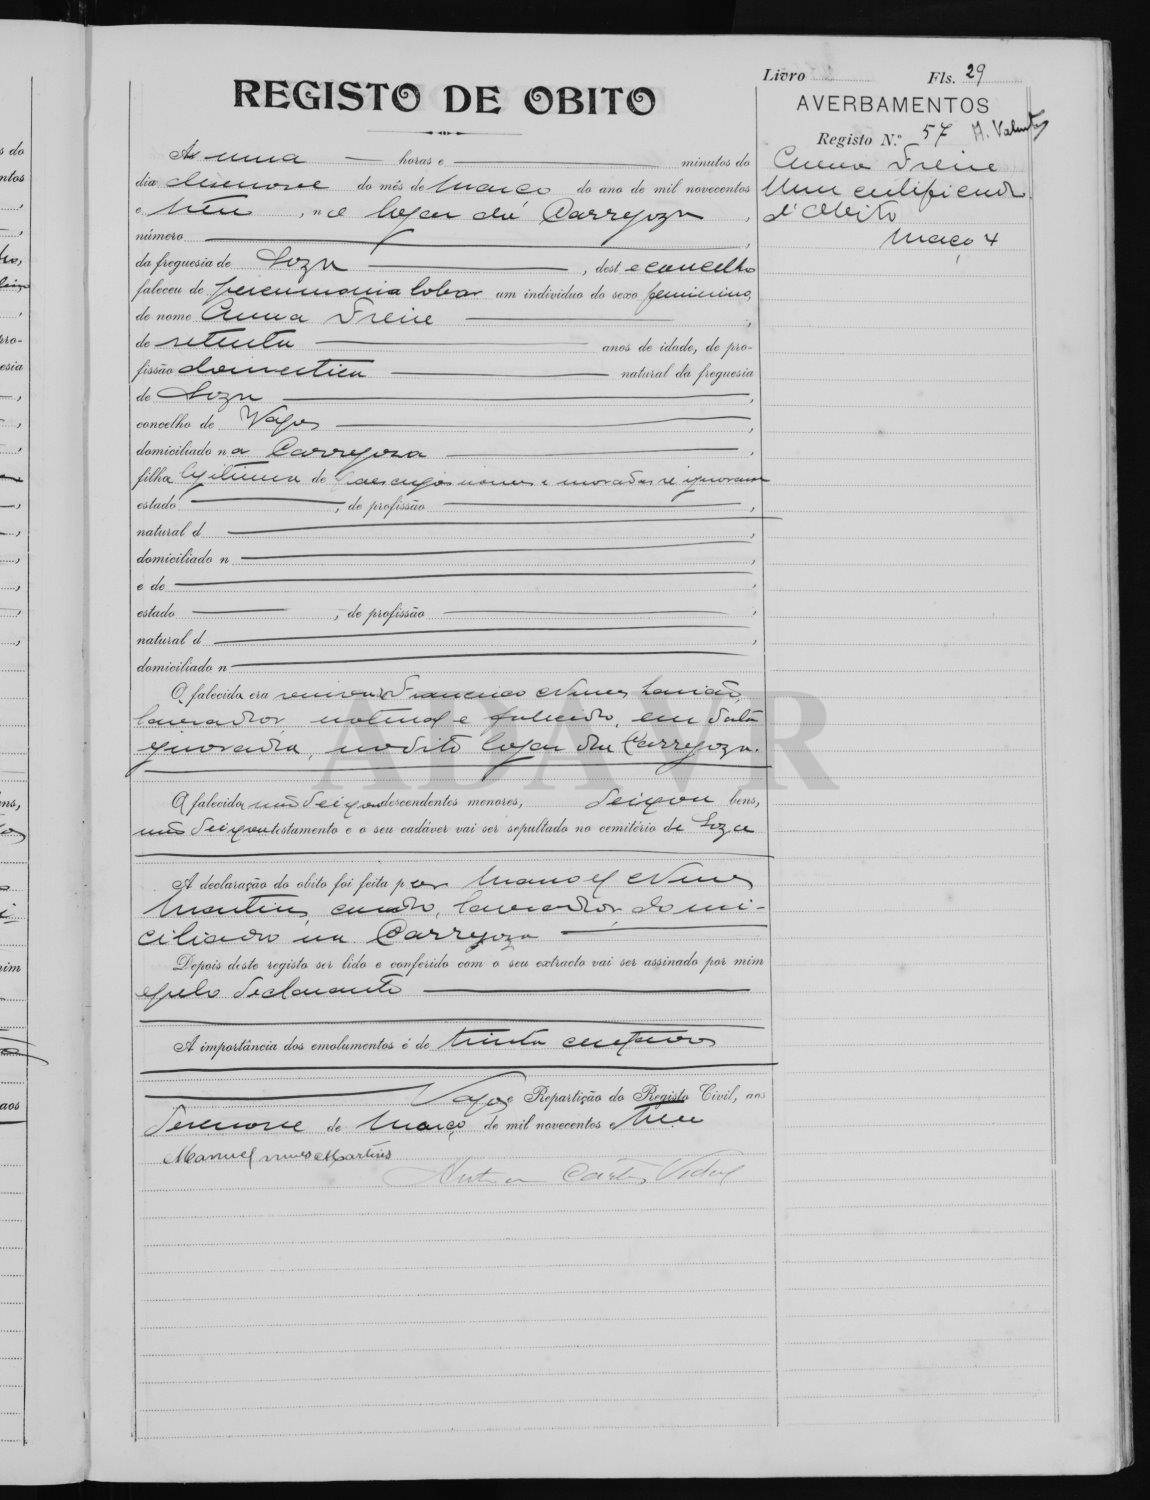 Livro Fls. 29
REGISTO DE OBITO
AVERBAMENTOS
Registo N.º 57 A. Valente
Anna Freire
Um certificado
d'obito
Março 4
Ás uma — horas e — minutos do
dia desenove do mês de Março do ano de mil novecentos
e treis, no logar da Carregoza,
número —,
da freguesia de Soza —, deste concelho
faleceu de pneumonia lobar um indivíduo do sexo feminino,
de nome Anna Freire —,
de setenta — anos de idade, de pro-
fissão domestica — natural da freguesia
de Soza —,
concelho de Vagos —,
domiciliado na Carregosa —,
filha legitima de paes cujos nomes e moradas se ignoram
estado —, de profissão —,
natural d —,
domiciliado n —,
e de —,
estado —, de profissão —,
natural d —,
domiciliado n —
O falecida era viuva de Francisco Nunes
lavrador, natural e falecido, em data
ignorada, no dito logar da Carregoza.
A falecida não deixou descendentes menores, deixou bens,
não deixou testamento e o seu cadáver vai ser sepultado no cemitério de Soza
A declaração do obito foi feita por Manoel Nunes
Martins, casado, lavrador, domi-
ciliado na Carregoza —
Depois deste registo ser lido e conferido com o seu extracto vai ser assinado por mim
e pelo declarante —
A importância dos emolumentos é de trinta centavos
Vagos e Repartição do Registo Civil, aos
desenove de Março de mil novecentos e treis
Manuel nunes Martins
Vidal
ADAVR